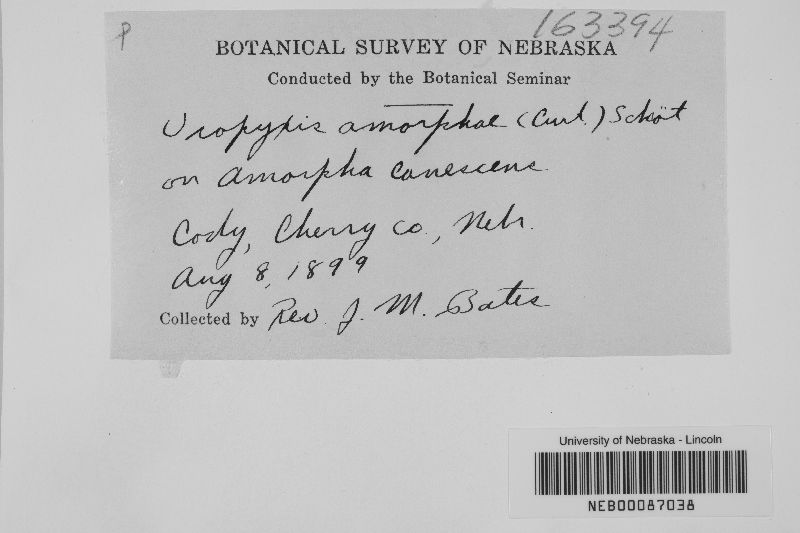 P
163394
BOTANICAL SURVEY OF NEBRASKA
Conducted by the Botanical Seminar
Uropyxis amorphae (Curt.) Schröt
on Amorpha canescens.
Cody, Cherry Co., Nebr.
Aug 8, 1899
Collected by Rev. J. M. Bates
University of Nebraska - Lincoln
NEB00087038